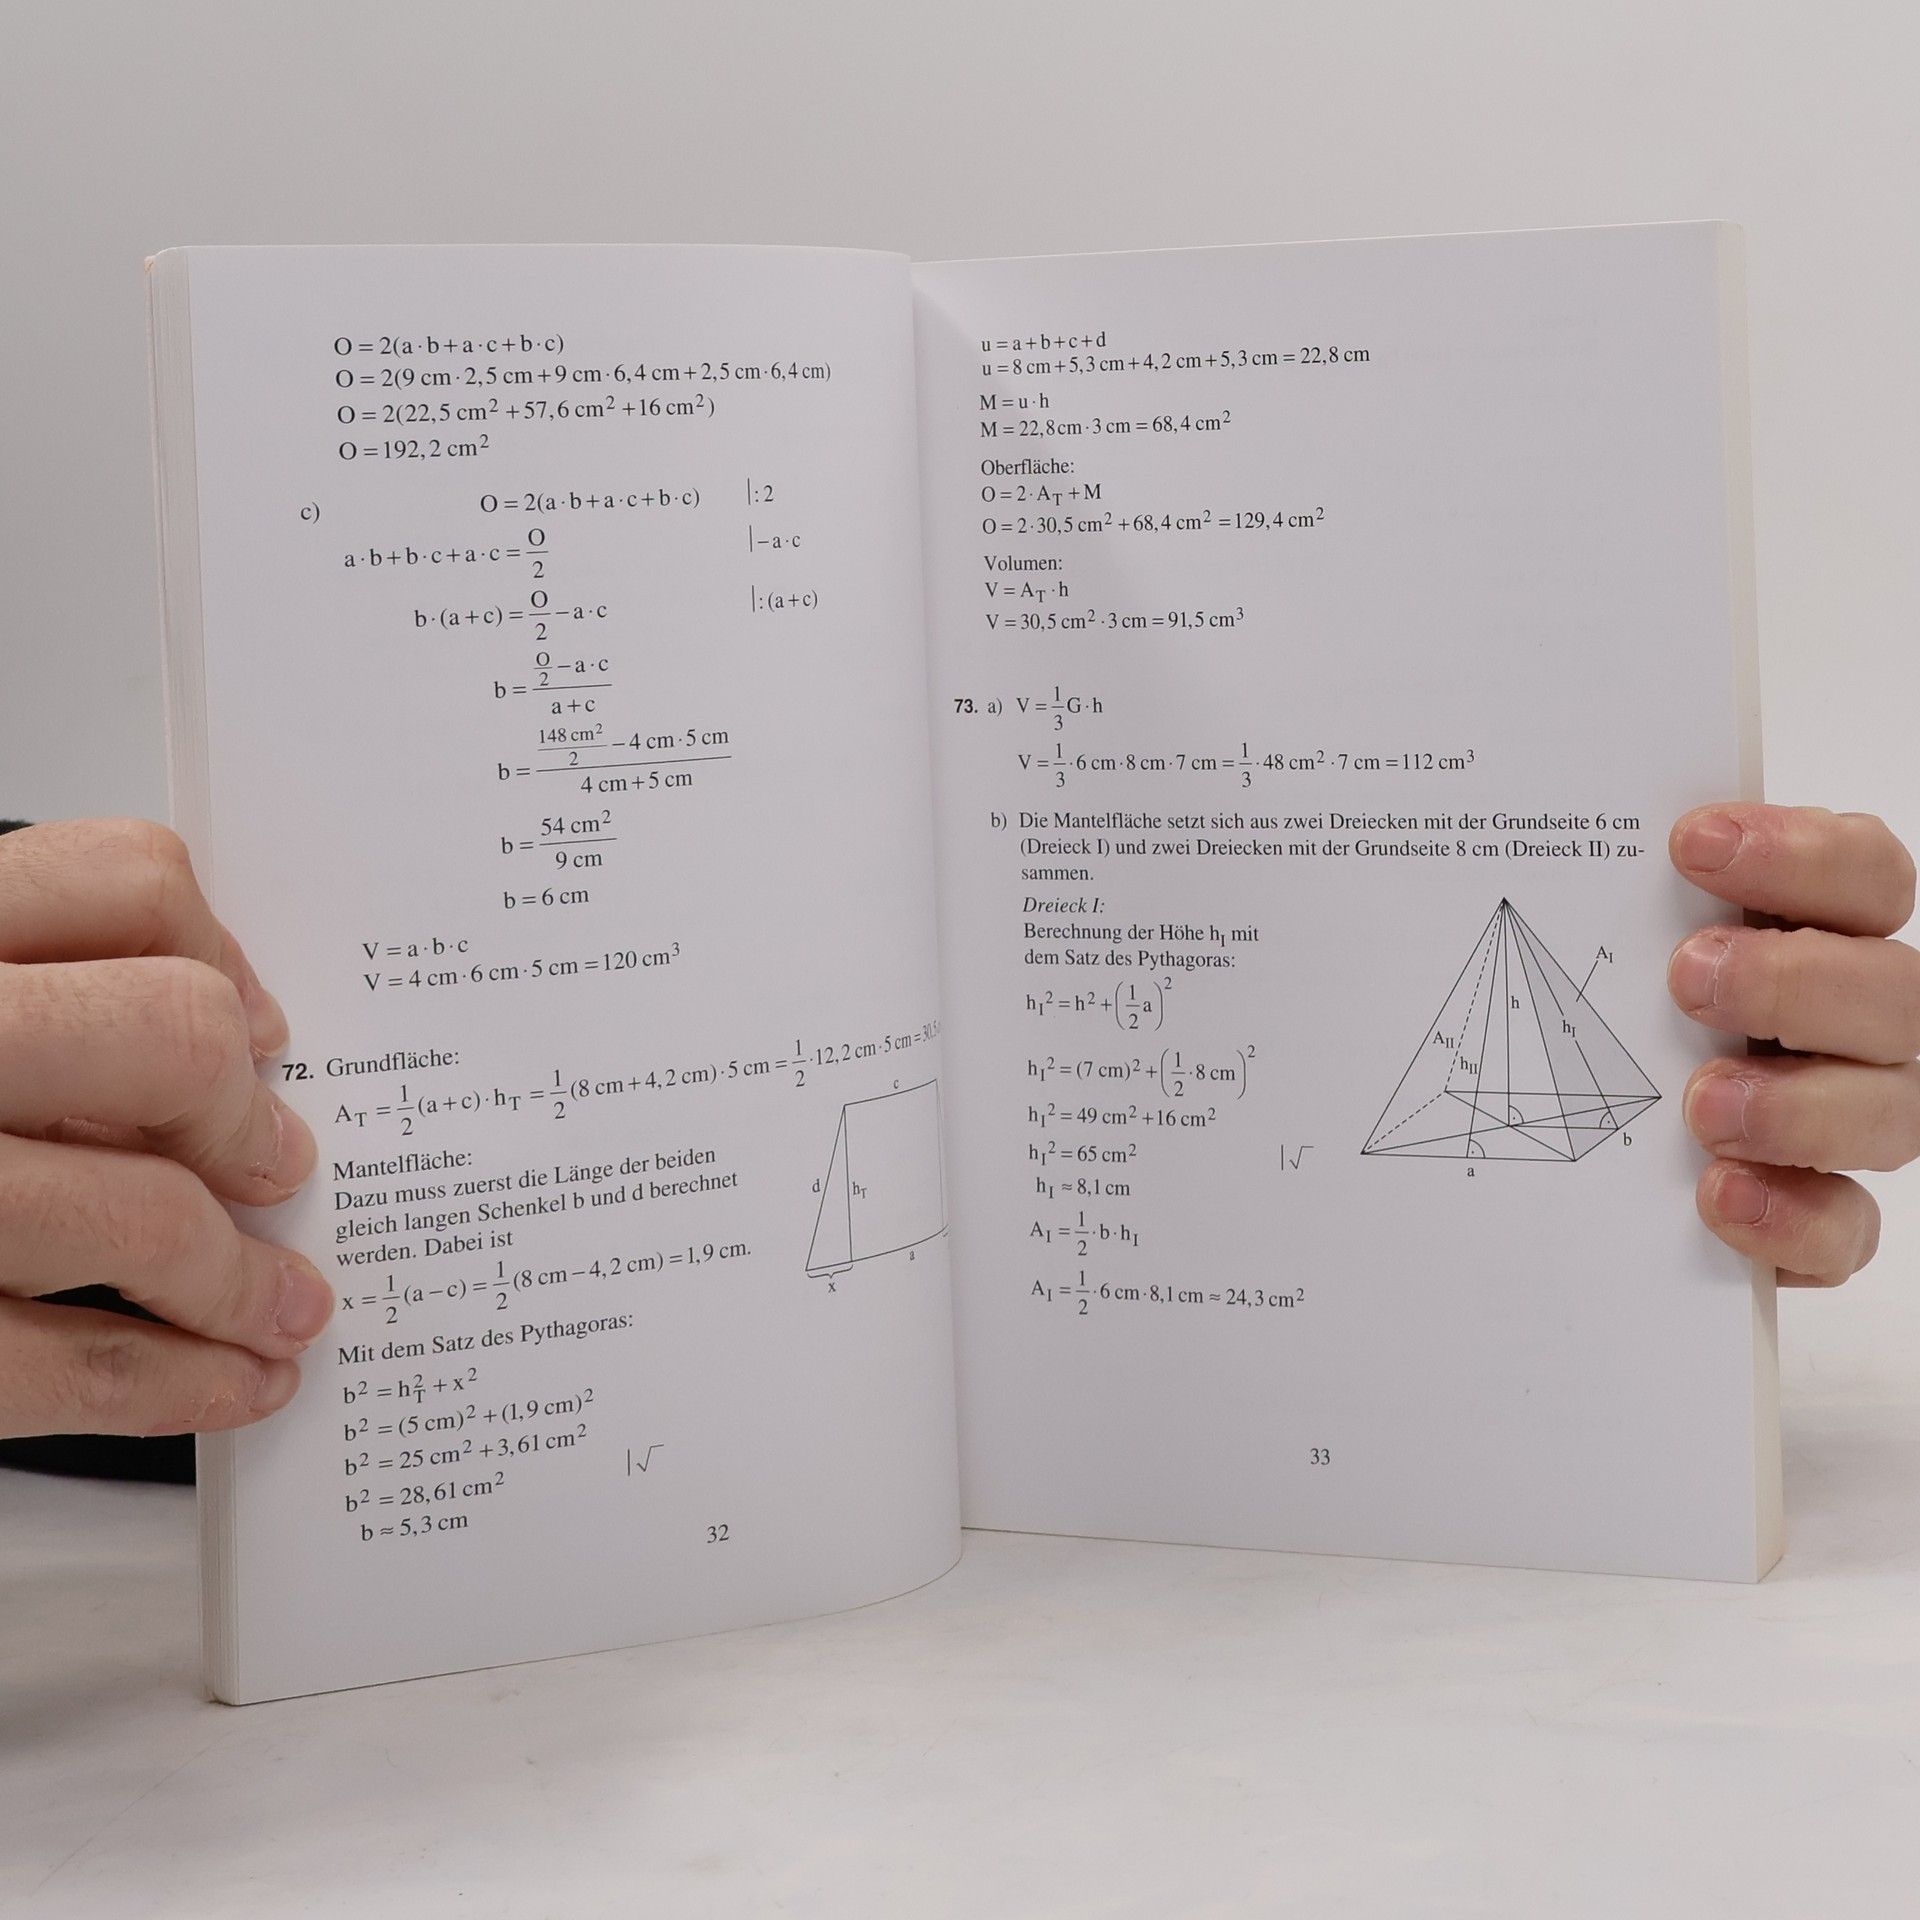 O = 2(a·b+a·c+b·c)
O = 2(9 cm·2,5 cm+9 cm·6,4 cm+2,5 cm·6,4 cm)
O = 2(22,5 cm² +57,6 cm² +16 cm²)
O = 192,2 cm²
c) O = 2(a·b+a·c+b·c) |:2
a·b+b·c+a·c = O/2 |−a·c
b·(a+c) = O/2 −a·c |:(a+c)
b = (O/2 −a·c)/(a+c)
b = (148 cm²/2 −4 cm·5 cm)/(4 cm+5 cm)
b = 54 cm²/9 cm
b = 6 cm
V = a·b·c
V = 4 cm·6 cm·5 cm = 120 cm³
72. Grundfläche:
A_T = 1/2(a+c)·h_T = 1/2(8 cm+4,2 cm)·5 cm = 1/2·12,2 cm·5 cm = 30,5
Mantelfläche:
Dazu muss zuerst die Länge der beiden
gleich langen Schenkel b und d berechnet
werden. Dabei ist
x = 1/2(a−c) = 1/2(8 cm−4,2 cm) = 1,9 cm.
c
d
h_T
a
x
Mit dem Satz des Pythagoras:
b² = h_T² + x²
b² = (5 cm)² + (1,9 cm)²
b² = 25 cm² +3,61 cm²
b² = 28,61 cm² |√
b ≈ 5,3 cm
32
u = a+b+c+d
u = 8 cm+5,3 cm+4,2 cm+5,3 cm = 22,8 cm
M = u·h
M = 22,8 cm·3 cm = 68,4 cm²
Oberfläche:
O = 2·A_T + M
O = 2·30,5 cm² +68,4 cm² = 129,4 cm²
Volumen:
V = A_T·h
V = 30,5 cm²·3 cm = 91,5 cm³
73. a) V = 1/3 G·h
V = 1/3·6 cm·8 cm·7 cm = 1/3·48 cm²·7 cm = 112 cm³
b) Die Mantelfläche setzt sich aus zwei Dreiecken mit der Grundseite 6 cm
(Dreieck I) und zwei Dreiecken mit der Grundseite 8 cm (Dreieck II) zu-
sammen.
Dreieck I:
Berechnung der Höhe h_I mit
dem Satz des Pythagoras:
h_I² = h² + (1/2 a)²
h_I² = (7 cm)² + (1/2·8 cm)²
h_I² = 49 cm² +16 cm²
h_I² = 65 cm² |√
h_I ≈ 8,1 cm
A_I = 1/2·b·h_I
A_I = 1/2·6 cm·8,1 cm ≈ 24,3 cm²
A_I
h
h_I
A_II
h_II
b
a
33